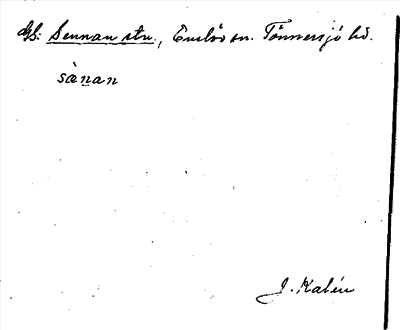 Gb: Sennan stn., Enslöv sn. Tönnersjö hd.
sànan
J. Kalén